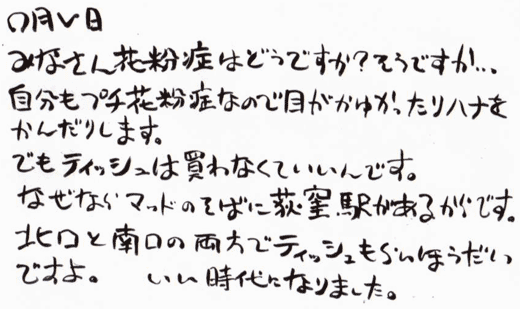 〇月✓日
みなさん花粉症はどうですか?そうですか...
自分もプチ花粉症なので目がかゆかったりハナを
かんだりします。
でもティッシュは買わなくていいんです。
なぜならマッドのそばに荻窪駅があるからです。
北口と南口の両方でティッシュもらいほうだい
ですよ。 いい時代になりました。